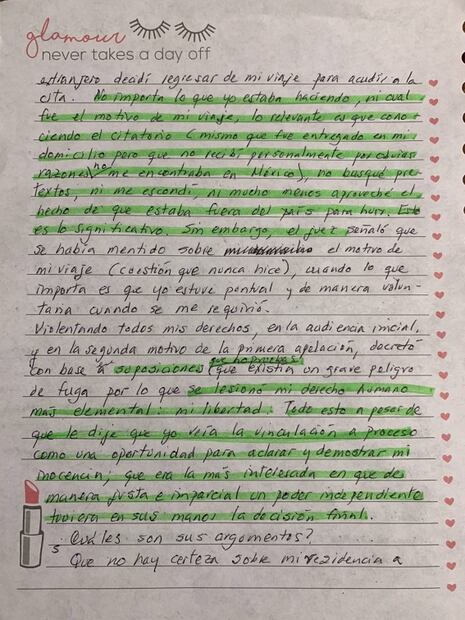 glamour
never takes a day off
estranjero decidí regresar de mi viaje para acudir a la
cita. No importa lo que yo estaba haciendo, ni cual
fue el motivo de mi viaje, lo relevante es que cono-
ciendo el citatorio (mismo que fue entregado en mi
domicilio pero que no recibí personalmente por obvias
razones, no me encontraba en México), no busqué pre-
textos, ni me escondí, ni mucho menos aproveché el
hecho de que estaba fuera del país para huir. Esto
es lo significativo. Sin embargo, el juez señaló que
se había mentido sobre el motivo de
mi viaje (cuestión que nunca hice), cuando lo que
importa es que yo estuve puntual y de manera volun-
taria cuando se me requirió.
Violentando todos mis derechos, en la audiencia inicial,
y en la segunda motivo de la primera apelación, decretó
con base a suposiciones y no pruebas que existía un grave peligro
de fuga por lo que se lesionó mi derecho humano
más elemental: mi libertad. Todo esto a pesar de
que le dije que yo veía la vinculación a proceso
como una oportunidad para aclarar y demostrar mi
inocencia; que era la más interesada en que de
manera justa e imparcial un poder independiente
tuviera en sus manos la decisión final.
¿Cuáles son sus argumentos?
Que no hay certeza sobre mi residencia a